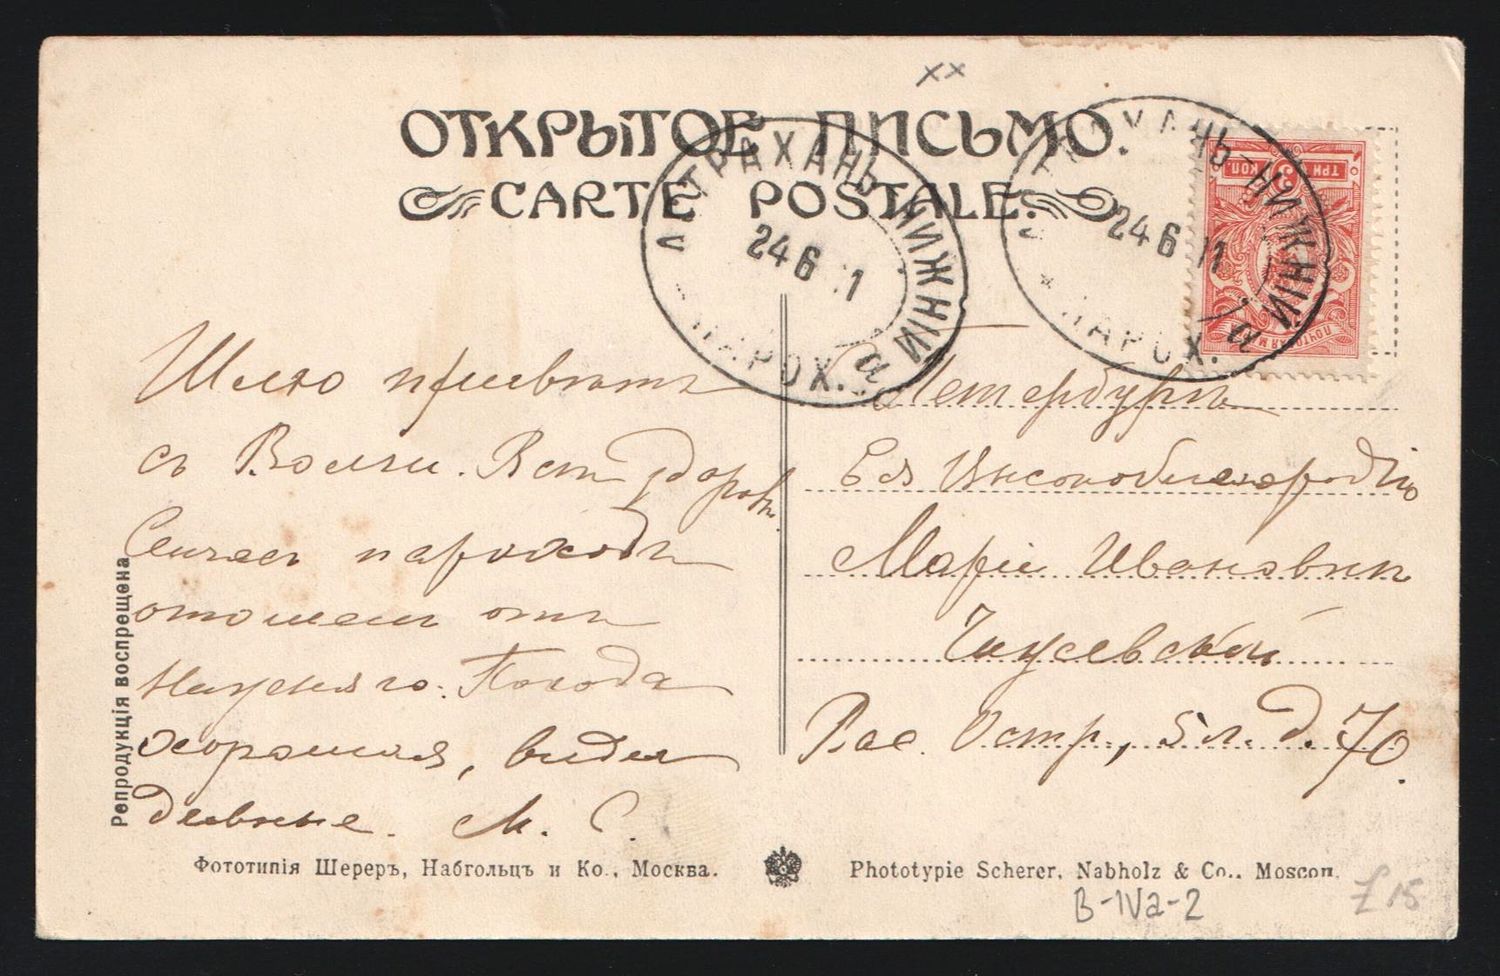 хх
ОТКРЫТОЕ ПИСЬМО.
CARTE POSTALE.
АСТРАХАНЬ-НИЖНІЙ
24 6 11
ПАРОХ. "а"
АСТРАХАНЬ-НИЖНІЙ
24 6 11
ПАРОХ. "а"
ТРИ 3 КОП.
ПОЧТОВАЯ МАРКА
Шлю привѣтъ
съ Волги. Всѣ здоровы.
Сейчасъ пароходъ
отошелъ отъ
Нижняго. Погода
хорошая, виды
дивные. М. С.
Петербургъ
Ея Высокоблагородію
Маріи Ивановнѣ
Вас. Остр., 5 л. д. 70.
Репродукція воспрещена
Фототипія Шереръ, Набгольцъ и Ко., Москва.
Phototypie Scherer, Nabholz & Co., Moscou.
B-IVa-2
£15